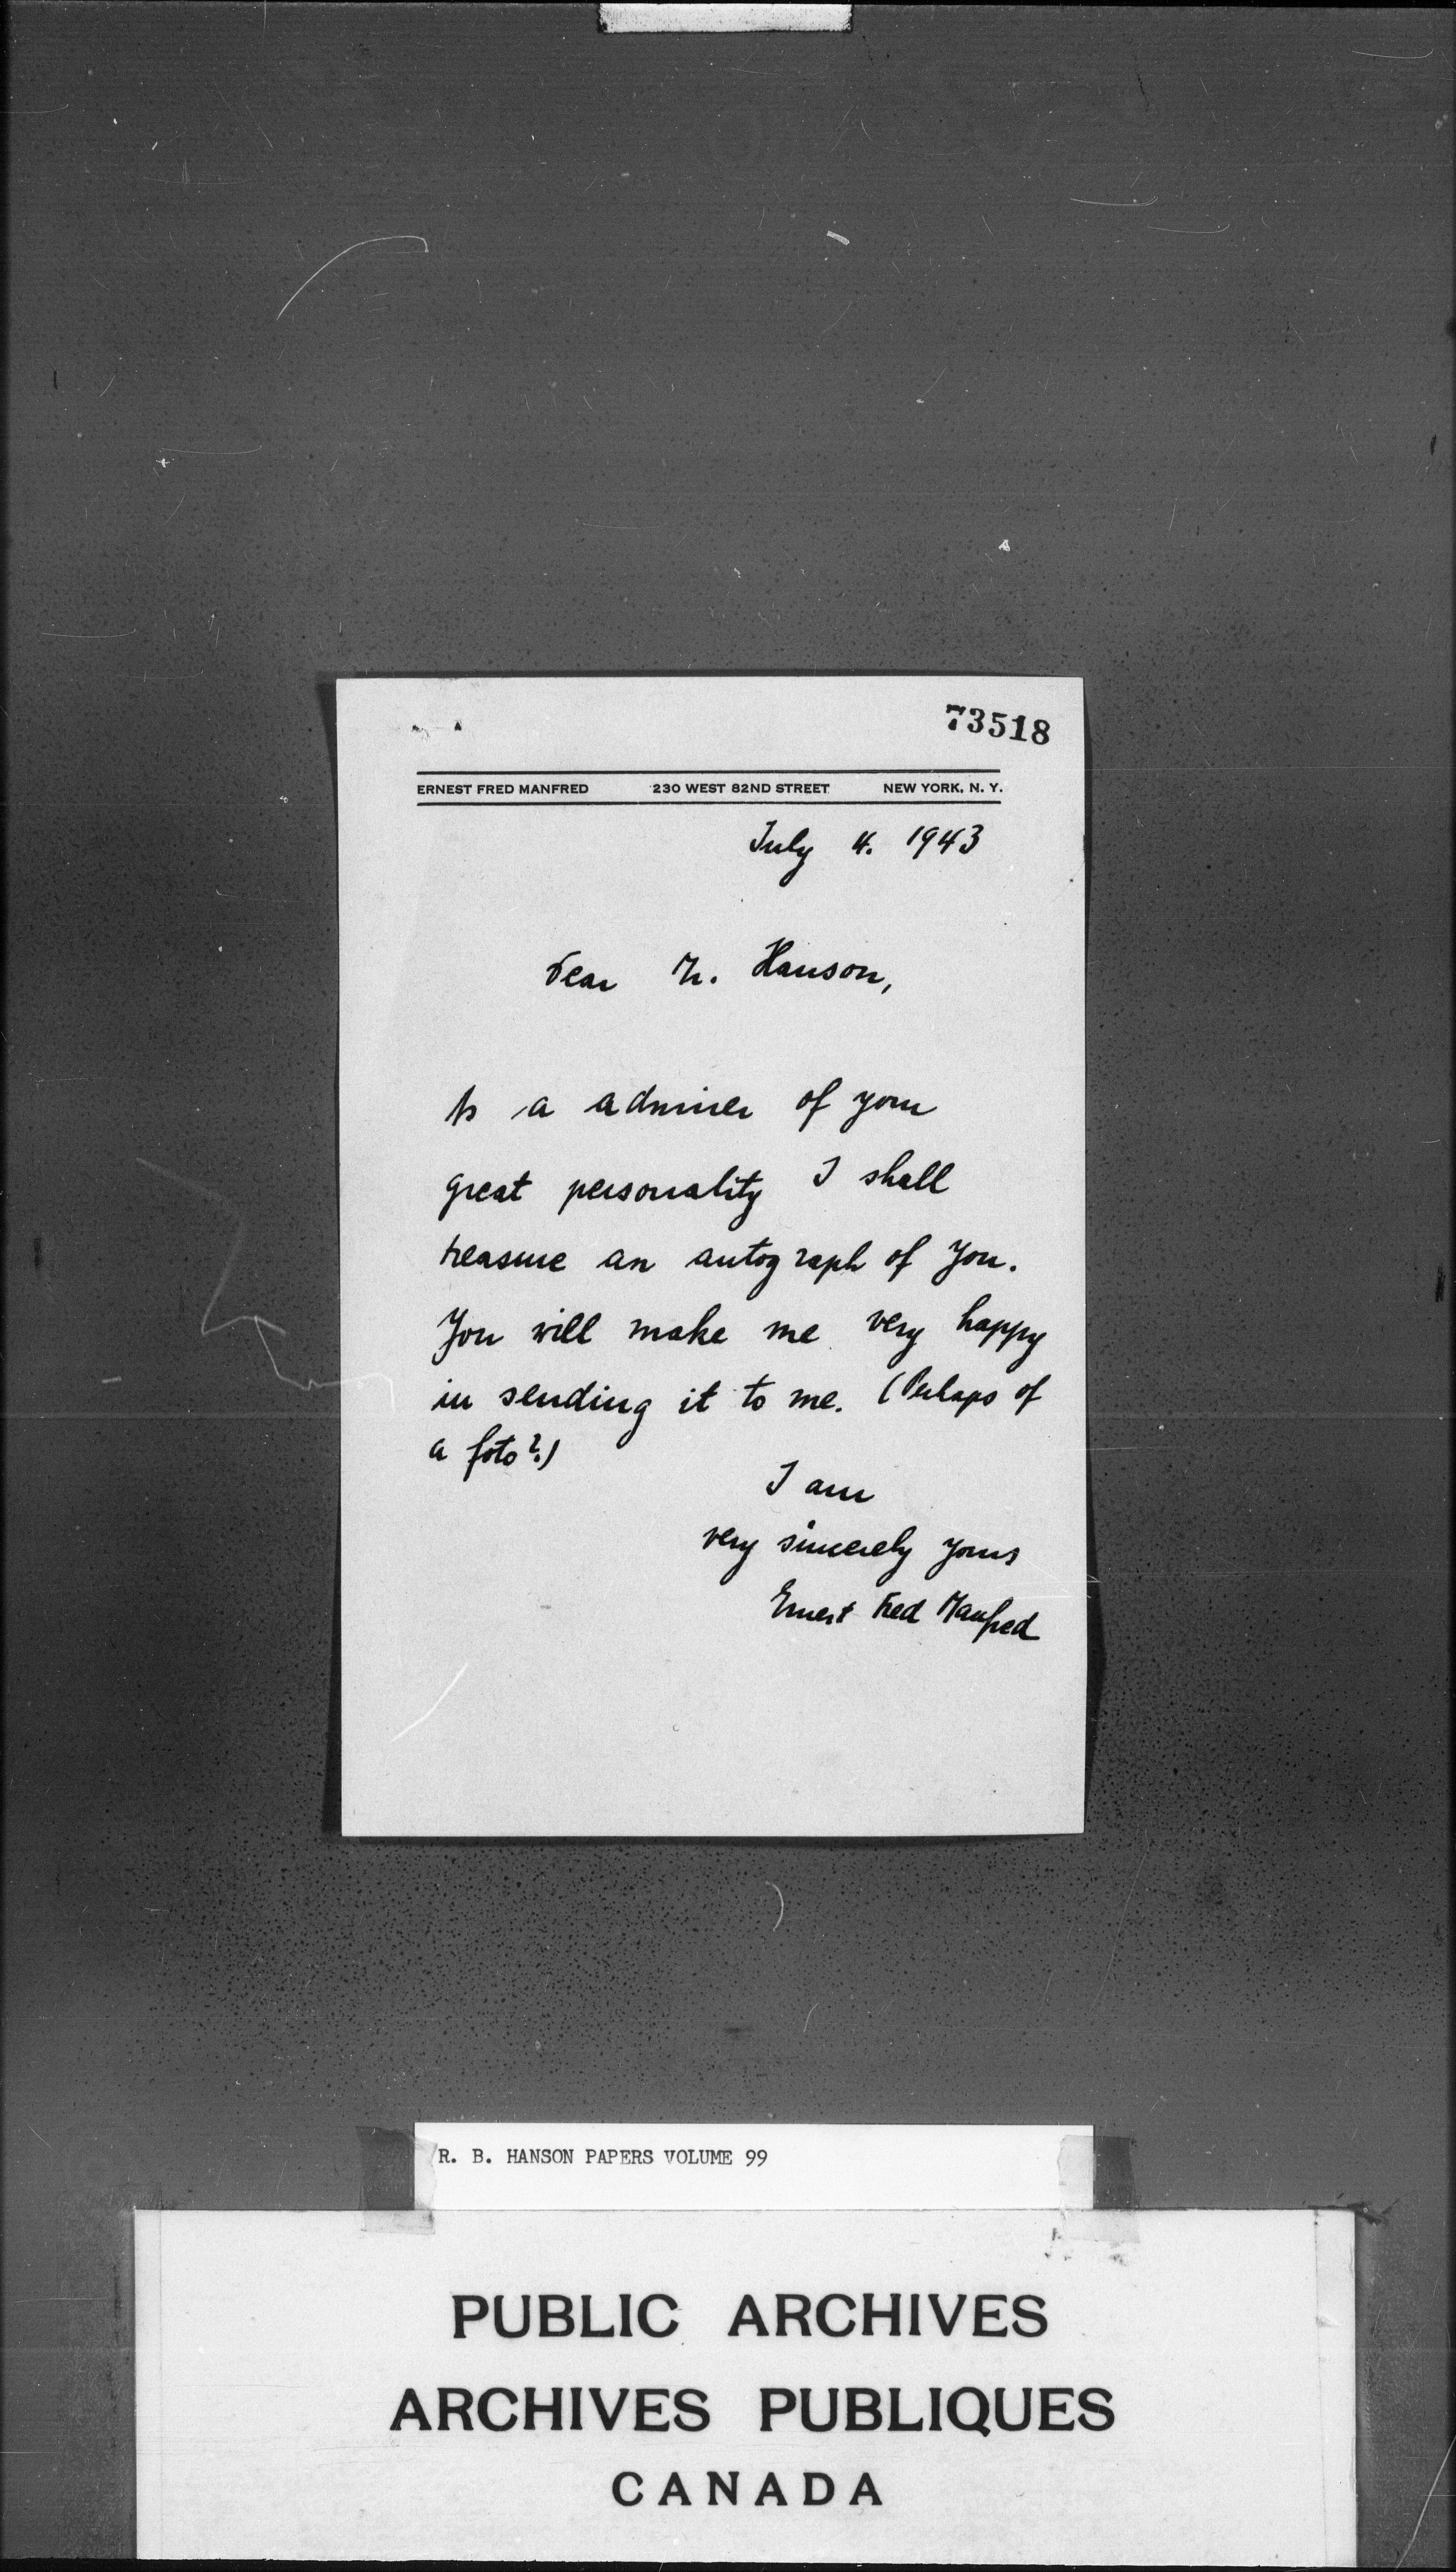 73518
ERNEST FRED MANFRED 230 WEST 82ND STREET NEW YORK, N. Y.
July 4. 1943
Dear Mr. Hanson,
As a admirer of your
great personality I shall
treasure an autograph of You.
You will make me very happy
in sending it to me. (Perhaps of
a foto?)
I am
very sincerely yours
Ernest Fred Manfred
R. B. HANSON PAPERS VOLUME 99
PUBLIC ARCHIVES
ARCHIVES PUBLIQUES
CANADA